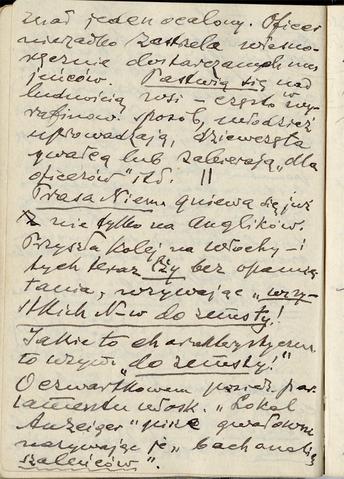 znał jeden ocalony. Oficer
nierzadko zastrzela własno-
ręcznie dostarczanych mu
jeńców. Pastwią się nad
ludnością wsi – często w wy-
rafinow. sposób, młodzież
uprowadzają, dziewczęta
gwałcą lub zabierają "dla
oficerów" itd. ||
Prasa Niem. gniewa się już
nie tylko na Anglików.
Przyszła kolej na Włochy – i
tych teraz łży bez opamię-
tania, wzywając "wszy-
stkich N-w do zemsty!
Jakie to charakterystyczne
to wezw. "do zemsty!"
O czwartkowem posiedz. par-
lamentu włosk. "Lokal
Anzeiger" pisze gwałtownie
nazywając je "bachanalią
szaleńców".